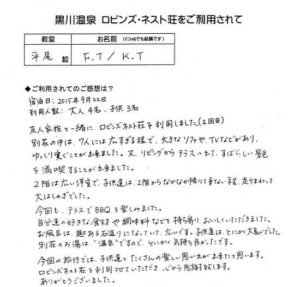 黒川温泉 ロビンズ・ネスト荘をご利用されて
教室
お名前 (イニシャルでも結構です)
平尾 校
F.T / K.T
◆ご利用されてのご感想は?
宿泊日: 2015年9月22日
利用人数: 大人4名、子供3名
友人家族と一緒に ロビンズネスト荘を利用しました(2回目)
別荘の中は、7人には広すぎる程で、大きなソファや、TVなどがあり、
ゆっくり寛ぐことが出来ました。又、リビングからテラスへ出て、すばらしい景色
を満喫することが出来ました。
2階は広い洋室で、子供達は、2階からなかなか降りて来ない程、走りまわって
大はしゃぎでした。
今回も、テラスでBBQを楽しみました。
自分達の好きな食材や調味料なども持ち寄り、おいしくいただきました。
お風呂は、趣ある石造りになっていて、広いです。子供達は、とにかく大喜びでした。
別荘のお湯は"温泉"ですので、とにかく気持ち良かったです。
今回の旅行では、子供達とたくさんの楽しい思い出が出来たと思います。
ロビンズネスト荘を利用させていただき、心から感謝致します。
ありがとうございました。